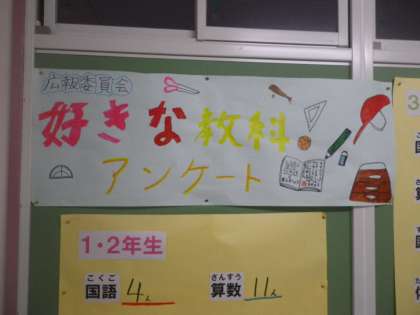 広報委員会
好きな教科
アンケート
1・2年生
こくご さんすう
国語 4人 算数 11人
3
国
算